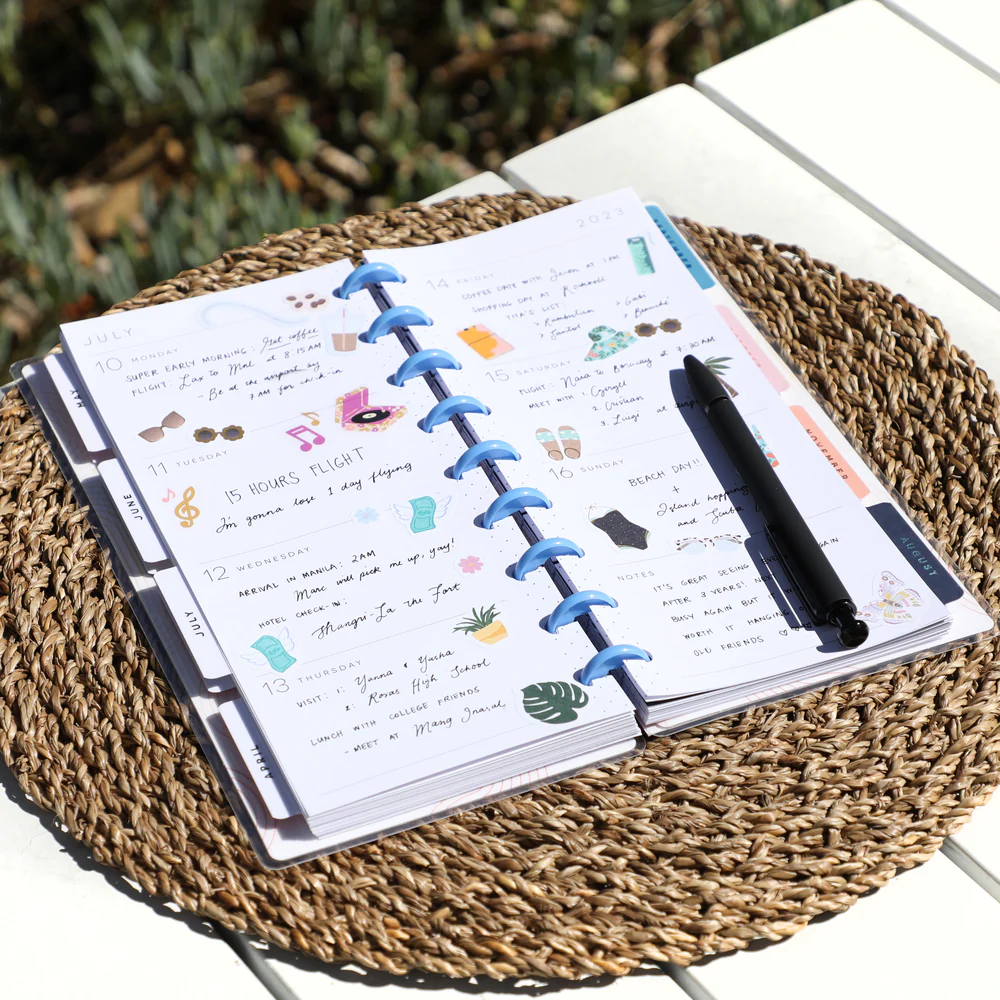 JULY
10 MONDAY
SUPER EARLY MORNING: Get coffee
FLIGHT: Lax to Mnl at 8:15AM
- Be at the airport by
7 AM for check-in
11 TUESDAY
15 HOURS FLIGHT
I'm gonna lose 1 day flying
12 WEDNESDAY
ARRIVAL IN MANILA: 2AM
Marc will pick me up, yay!
HOTEL CHECK-IN:
Shangri-La the Fort
13 THURSDAY
VISIT: 1: Yanna & Yusha
2: Roxas High School
LUNCH WITH COLLEGE FRIENDS
- MEET AT Mang Inasal
2023
14 FRIDAY
COFFEE DATE WITH Jason at 1PM
SHOPPING DAY AT
TITA'S LIST:
> Rambutan
> Santol
15 SATURDAY
FLIGHT: Naia to Boracay at 7:30AM
MEET WITH 1.
2. Cristian
3. Luigi at
16 SUNDAY
BEACH DAY!!
+
Island hopping
and Scuba
NOTES
IT'S GREAT SEEING
AGAIN
AFTER 3 YEARS!
BUSY AGAIN BUT
WORTH IT HANGING
OLD FRIENDS
MAY
JUNE
JULY
APRIL
NOVEMBER
AUGUST